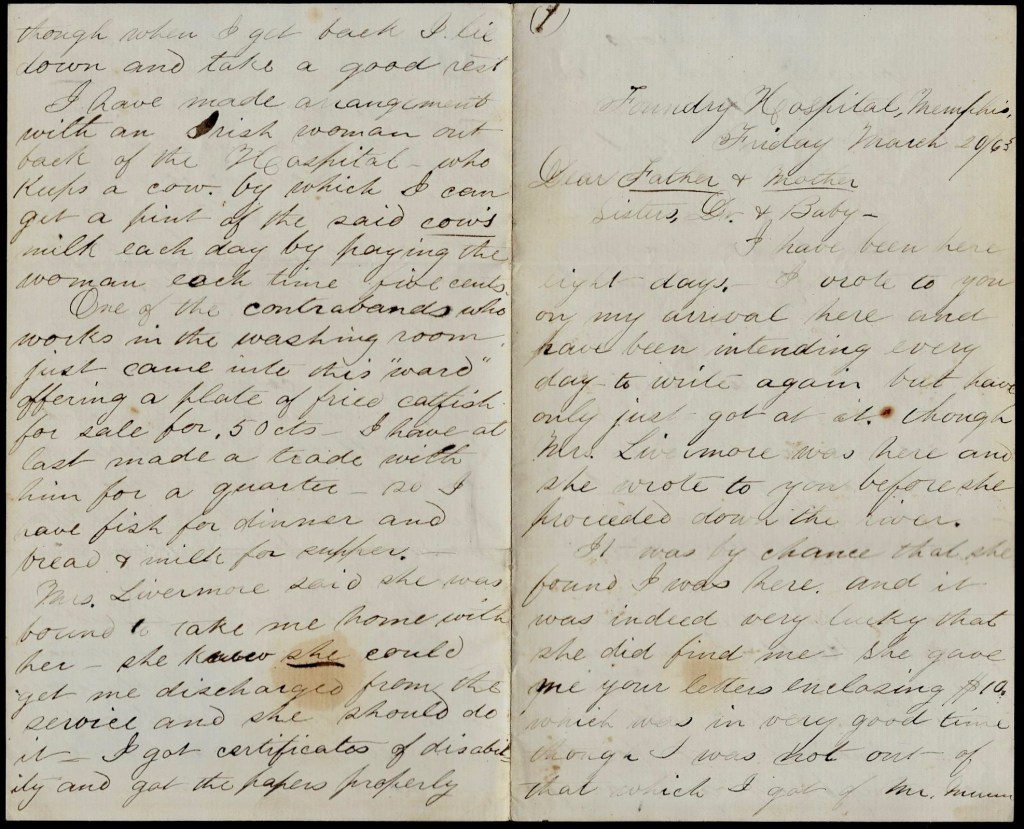 though when I get back I lie
down and take a good rest
I have made arangement
with an Irish woman out
back of the Hospital - who
keeps a cow. by which I can
get a pint of the said cow's
milk each day by paying the
woman each time five cents.
One of the contrabands who
works in the washing room
just came into this "ward"
offering a plate of fried catfish
for sale for .50cts - I have at
last made a trade with
him for a quarter - so I
have fish for dinner and
bread & milk for supper. -
Mrs. Livermore said she was
bound to take me home with
her - she knew she could
get me discharged from the
service and she should do
it - I got certificates of disabil-
ity and got the papers properly
(1)
Foundry Hospital, Memphis,
Friday March 20/63
Dear Father & Mother
Sisters, Dr. & Baby -
I have been here
eight days. - I wrote to you
on my arrival here and
have been intending every
day to write again but have
only just got at it. though
Mrs. Livermore was here and
she wrote to you before she
proceeded down the river.
It was by chance that she
found I was here. and it
was indeed very lucky that
she did find me - she gave
me your letters enclosing $10.
which was in very good time
though I was not out of
that which I got of Mr.